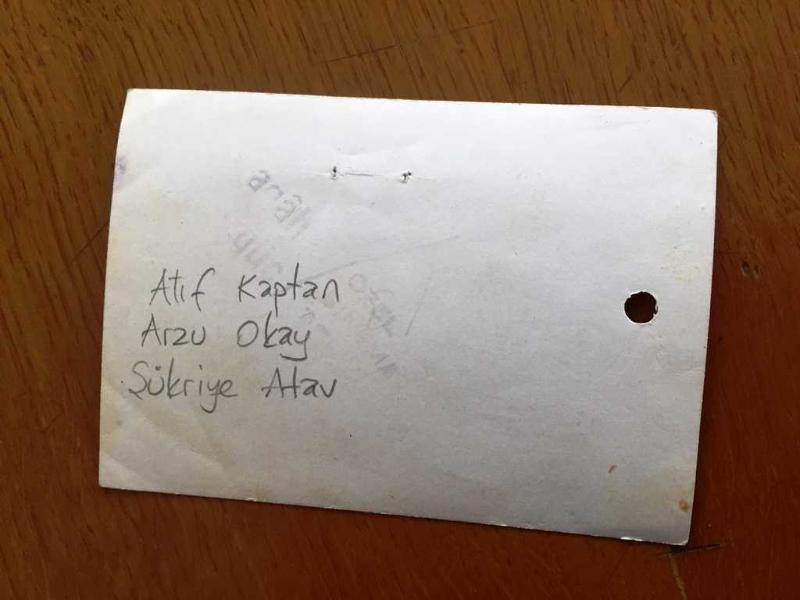 Atıf Kaptan
Arzu Okay
Şükriye Atav